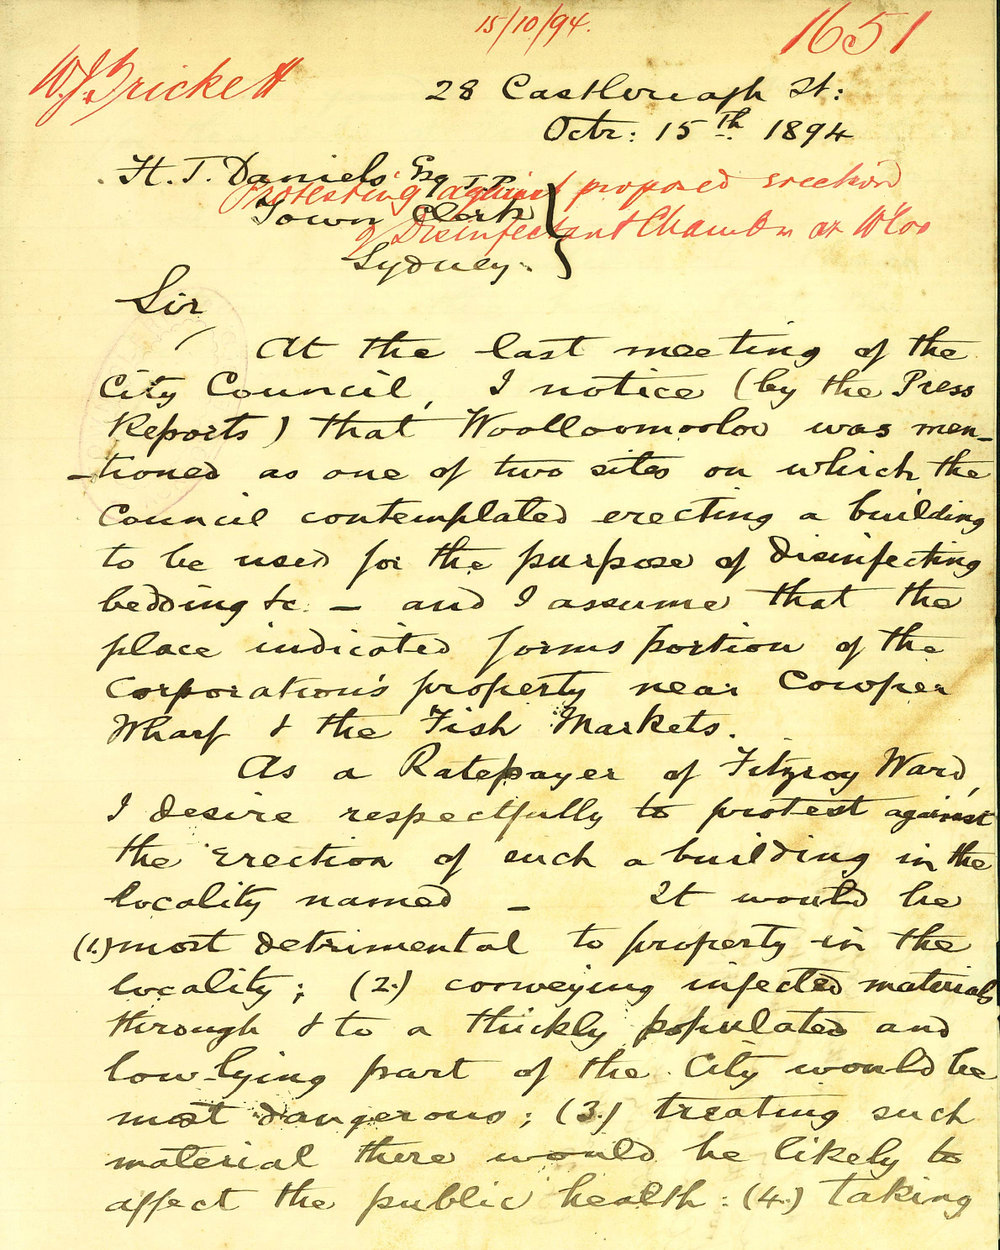 15/10/94.
1651
W. J. Trickett
28 Castlereagh St:
Octr: 15th 1894
H. T. Daniels Esq J.P.
Protesting against proposed erection
Town Clerk
of Disinfectant Chamber at W'loo
Sydney.
Sir,
At the last meeting of the
City Council, I notice (by the Press
Reports) that Woolloomooloo was men-
-tioned as one of two sites on which the
Council contemplated erecting a building
to be used for the purpose of disinfecting
bedding &c. — and I assume that the
place indicated forms portion of the
Corporation's property near Cowper
Wharf & the Fish Markets.
As a Ratepayer of Fitzroy Ward,
I desire respectfully to protest against
the erection of such a building in the
locality named — It would be
(1.) most detrimental to property in the
locality; (2.) conveying infected materials
through & to a thickly populated and
low-lying part of the City would be
most dangerous; (3.) treating such
material there would be likely to
affect the public health: (4.) taking